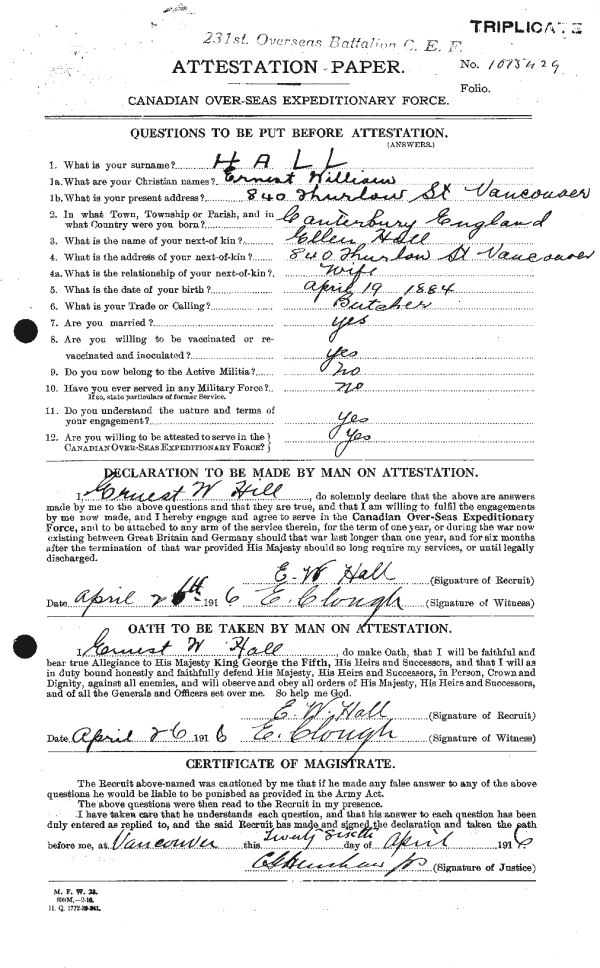 TRIPLICATE
231st. Overseas Battalion C. E. F.
ATTESTATION PAPER.
No. 1075429
Folio.
CANADIAN OVER-SEAS EXPEDITIONARY FORCE.
QUESTIONS TO BE PUT BEFORE ATTESTATION.
(ANSWERS.)
1. What is your surname? HALL
1a. What are your Christian names? Ernest William
1b. What is your present address? 840 Thurlow St Vancouver
2. In what Town, Township or Parish, and in
what Country were you born? Canterbury England
3. What is the name of your next-of kin? Ellen Hall
4. What is the address of your next-of-kin? 840 Thurlow St Vancouver
4a. What is the relationship of your next-of-kin? Wife
5. What is the date of your birth? April 19 1884
6. What is your Trade or Calling? Butcher
7. Are you married? yes
8. Are you willing to be vaccinated or re-
vaccinated and inoculated? yes
9. Do you now belong to the Active Militia? no
10. Have you ever served in any Military Force? no
If so, state particulars of former Service.
11. Do you understand the nature and terms of
your engagement? Yes
12. Are you willing to be attested to serve in the
CANADIAN OVER-SEAS EXPEDITIONARY FORCE? Yes
DECLARATION TO BE MADE BY MAN ON ATTESTATION.
I, Ernest W Hill, do solemnly declare that the above are answers
made by me to the above questions and that they are true, and that I am willing to fulfil the engagements
by me now made, and I hereby engage and agree to serve in the Canadian Over-Seas Expeditionary
Force, and to be attached to any arm of the service therein, for the term of one year, or during the war now
existing between Great Britain and Germany should that war last longer than one year, and for six months
after the termination of that war provided His Majesty should so long require my services, or until legally
discharged.
E. W Hall (Signature of Recruit)
Date April 26th 1916 E. Clough (Signature of Witness)
OATH TO BE TAKEN BY MAN ON ATTESTATION.
I, Ernest W Hall, do make Oath, that I will be faithful and
bear true Allegiance to His Majesty King George the Fifth, His Heirs and Successors, and that I will as
in duty bound honestly and faithfully defend His Majesty, His Heirs and Successors, in Person, Crown and
Dignity, against all enemies, and will observe and obey all orders of His Majesty, His Heirs and Successors,
and of all the Generals and Officers set over me. So help me God.
E. W. Hall (Signature of Recruit)
Date April 26 1916 E. Clough (Signature of Witness)
CERTIFICATE OF MAGISTRATE.
The Recruit above-named was cautioned by me that if he made any false answer to any of the above
questions he would be liable to be punished as provided in the Army Act.
The above questions were then read to the Recruit in my presence.
I have taken care that he understands each question, and that his answer to each question has been
duly entered as replied to, and the said Recruit has made and signed the declaration and taken the oath
before me, at Vancouver this Twenty Sixth day of April 1916
(Signature of Justice)
M. F. W. 23.
H. Q. 1772-39-241.